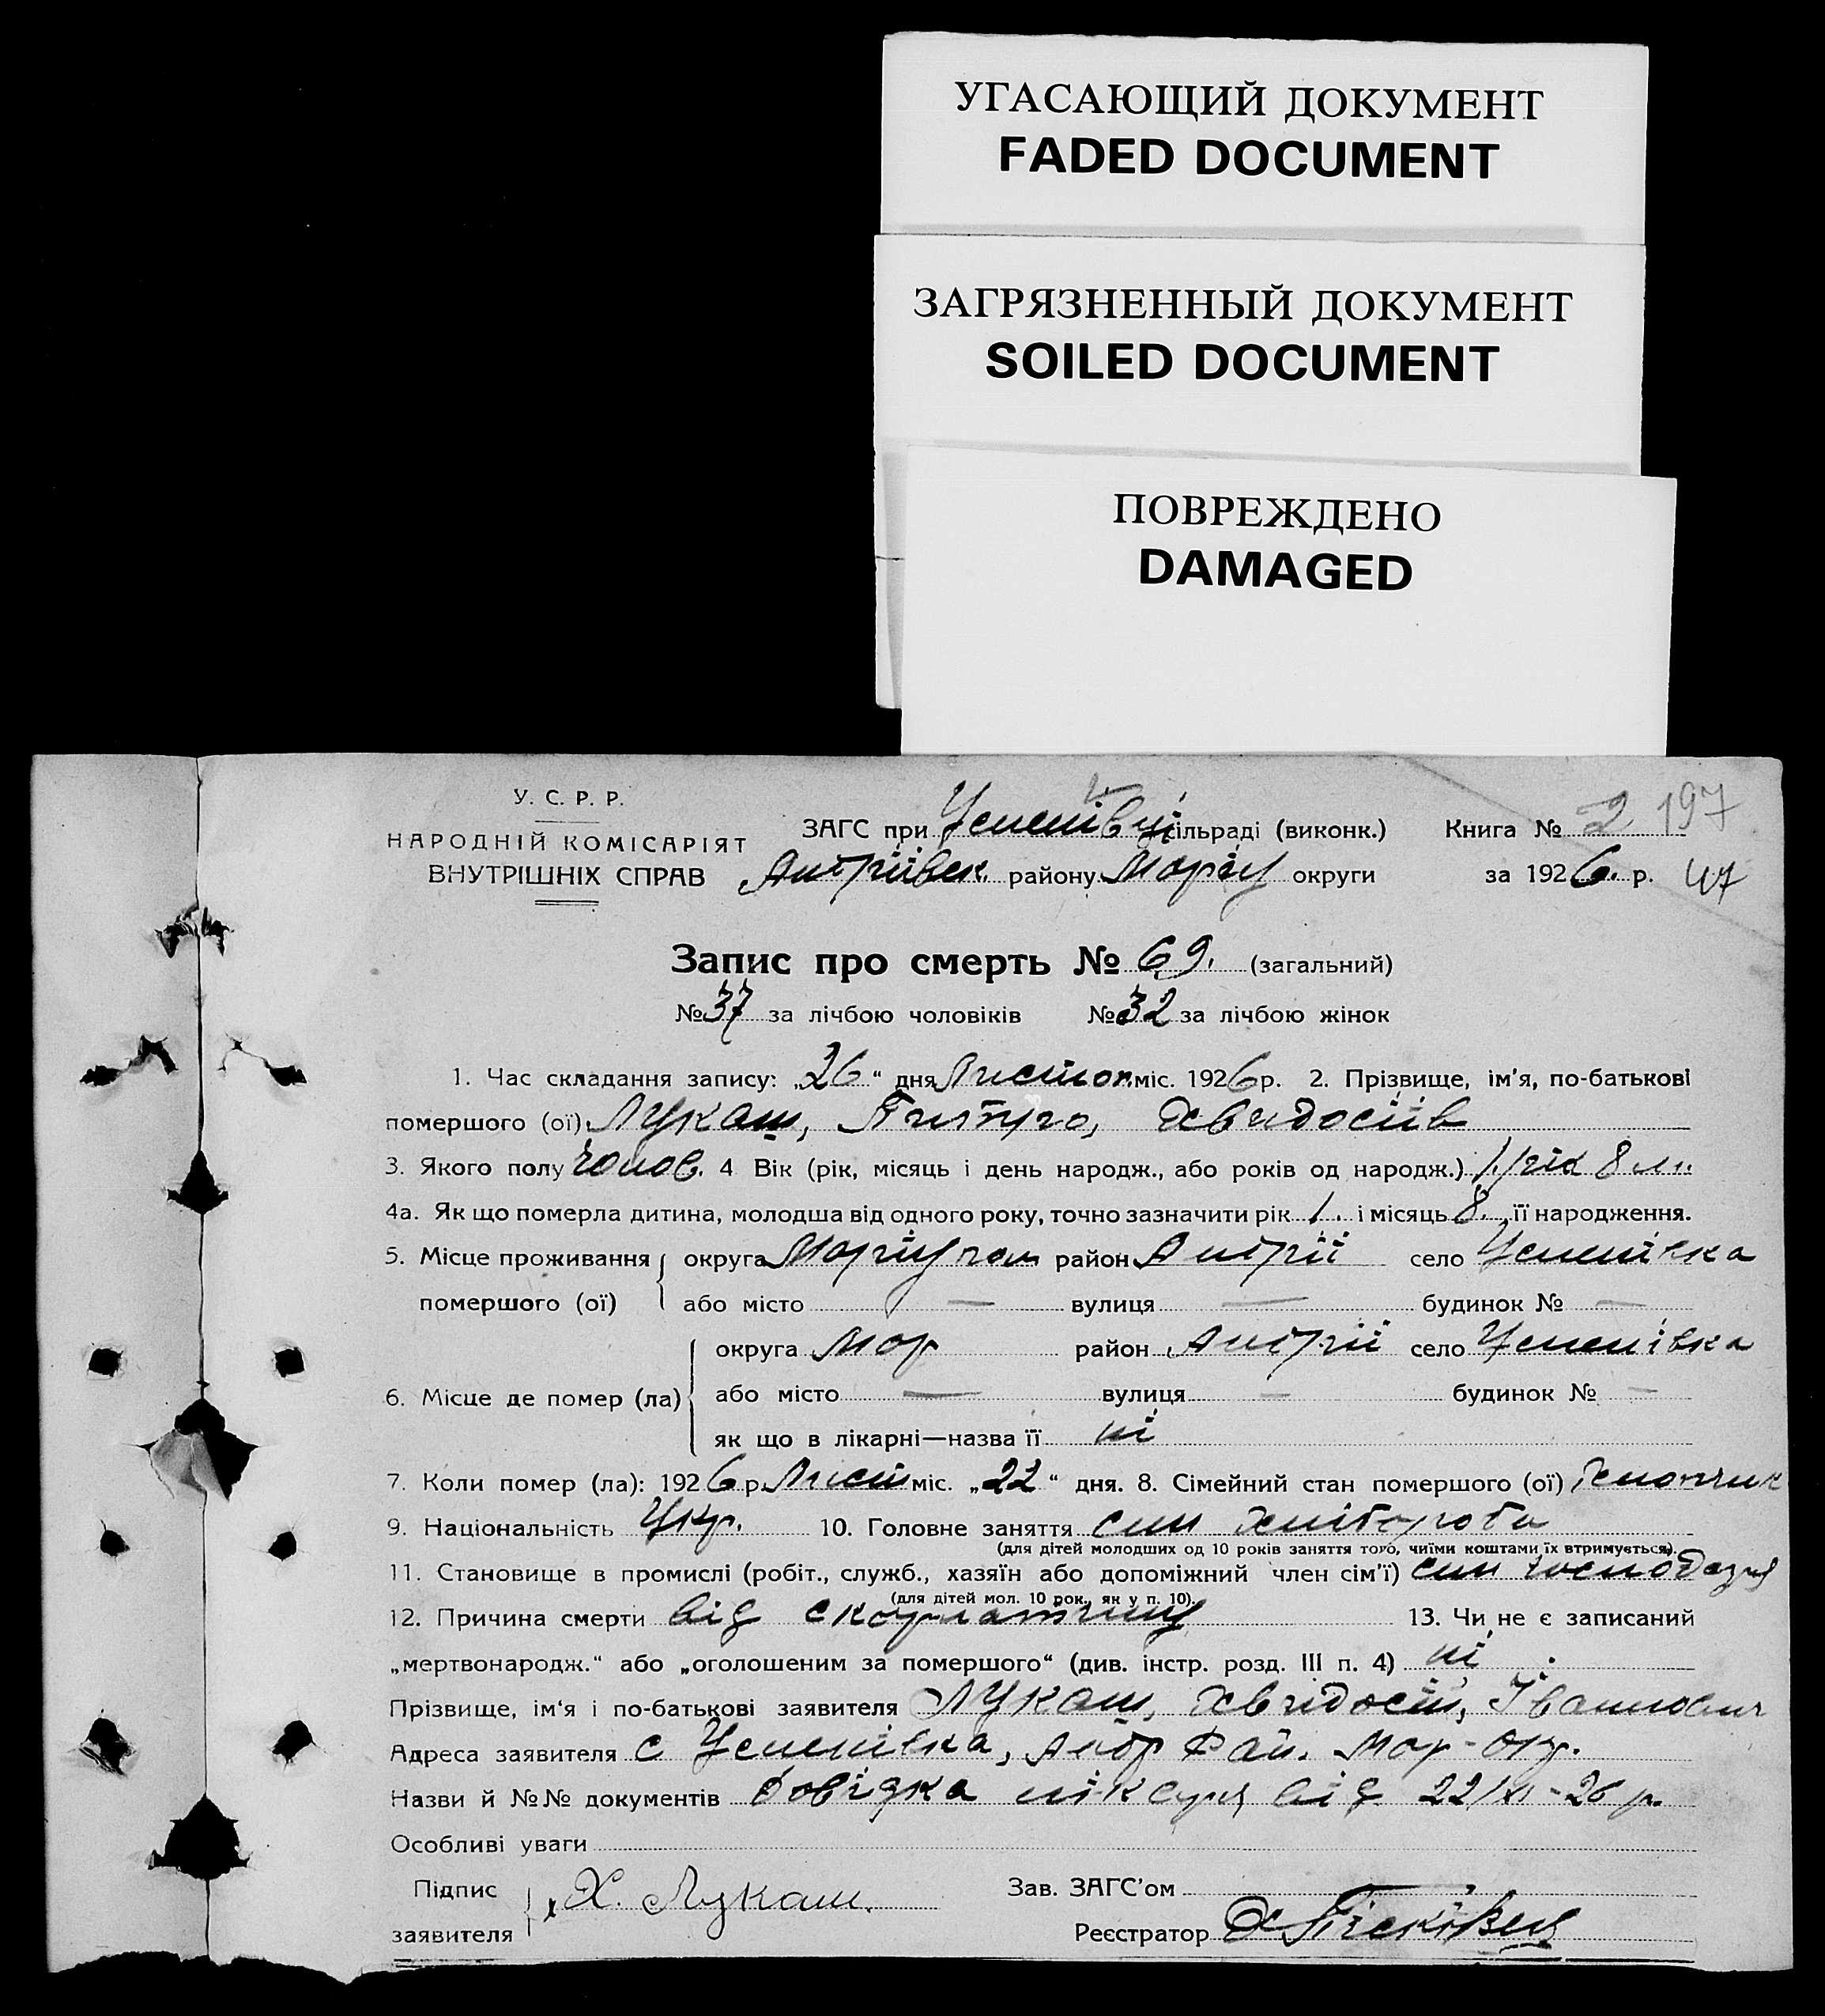 УГАСАЮЩИЙ ДОКУМЕНТ
FADED DOCUMENT
ЗАГРЯЗНЕННЫЙ ДОКУМЕНТ
SOILED DOCUMENT
ПОВРЕЖДЕНО
DAMAGED
У. С. Р. Р.
НАРОДНІЙ КОМІСАРІЯТ
ВНУТРІШНІХ СПРАВ
ЗАГС при Успенівці сільраді (виконк.) Книга № 2 197
Андріївск району Маріу округи за 1926. р. 47
Запис про смерть № 69. (загальний)
№ 37 за лічбою чоловіків № 32 за лічбою жінок
1. Час складання запису: „26“ дня Листоп. міс. 1926 р. 2. Прізвище, ім'я, по-батькові
помершого (ої) Лукаш, Питро, Хвидосіїв
3. Якого полу чолов. 4 Вік (рік, місяць і день народж., або років од народж.) 1. рік 8 м.
4а. Як що померла дитина, молодша від одного року, точно зазначити рік 1. і місяць 8. її народження.
5. Місце проживання округа Маріупол район Андрії село Успенівка
помершого (ої) або місто — вулиця — будинок № —
округа Мар район Андрії село Успенівка
6. Місце де помер (ла) або місто — вулиця — будинок № —
як що в лікарні—назва її ні
7. Коли помер (ла): 1926 р. Лист міс. „22“ дня. 8. Сімейний стан помершого (ої) Хлопчик
9. Національність Укр. 10. Головне заняття син хлібороба
(для дітей молодших од 10 років заняття того, чиїми коштами їх втримується).
11. Становище в промислі (робіт., служб., хазяїн або допоміжний член сім'ї) син господаря
(для дітей мол. 10 рок., як у п. 10).
12. Причина смерти від скарлатини 13. Чи не є записаний
„мертвонародж.“ або „оголошеним за помершого“ (див. інстр. розд. III п. 4) ні
Прізвище, ім'я і по-батькові заявителя Лукаш, Хвидосій, Іванович
Адреса заявителя с Успенівка, Андр Рай. Мар-Окр.
Назви й №№ документів Довідка лікаря від 22/XI-26 р.
Особливі уваги
Підпис
заявителя Х. Лукаш.
Зав. ЗАГС'ом
Реєстратор